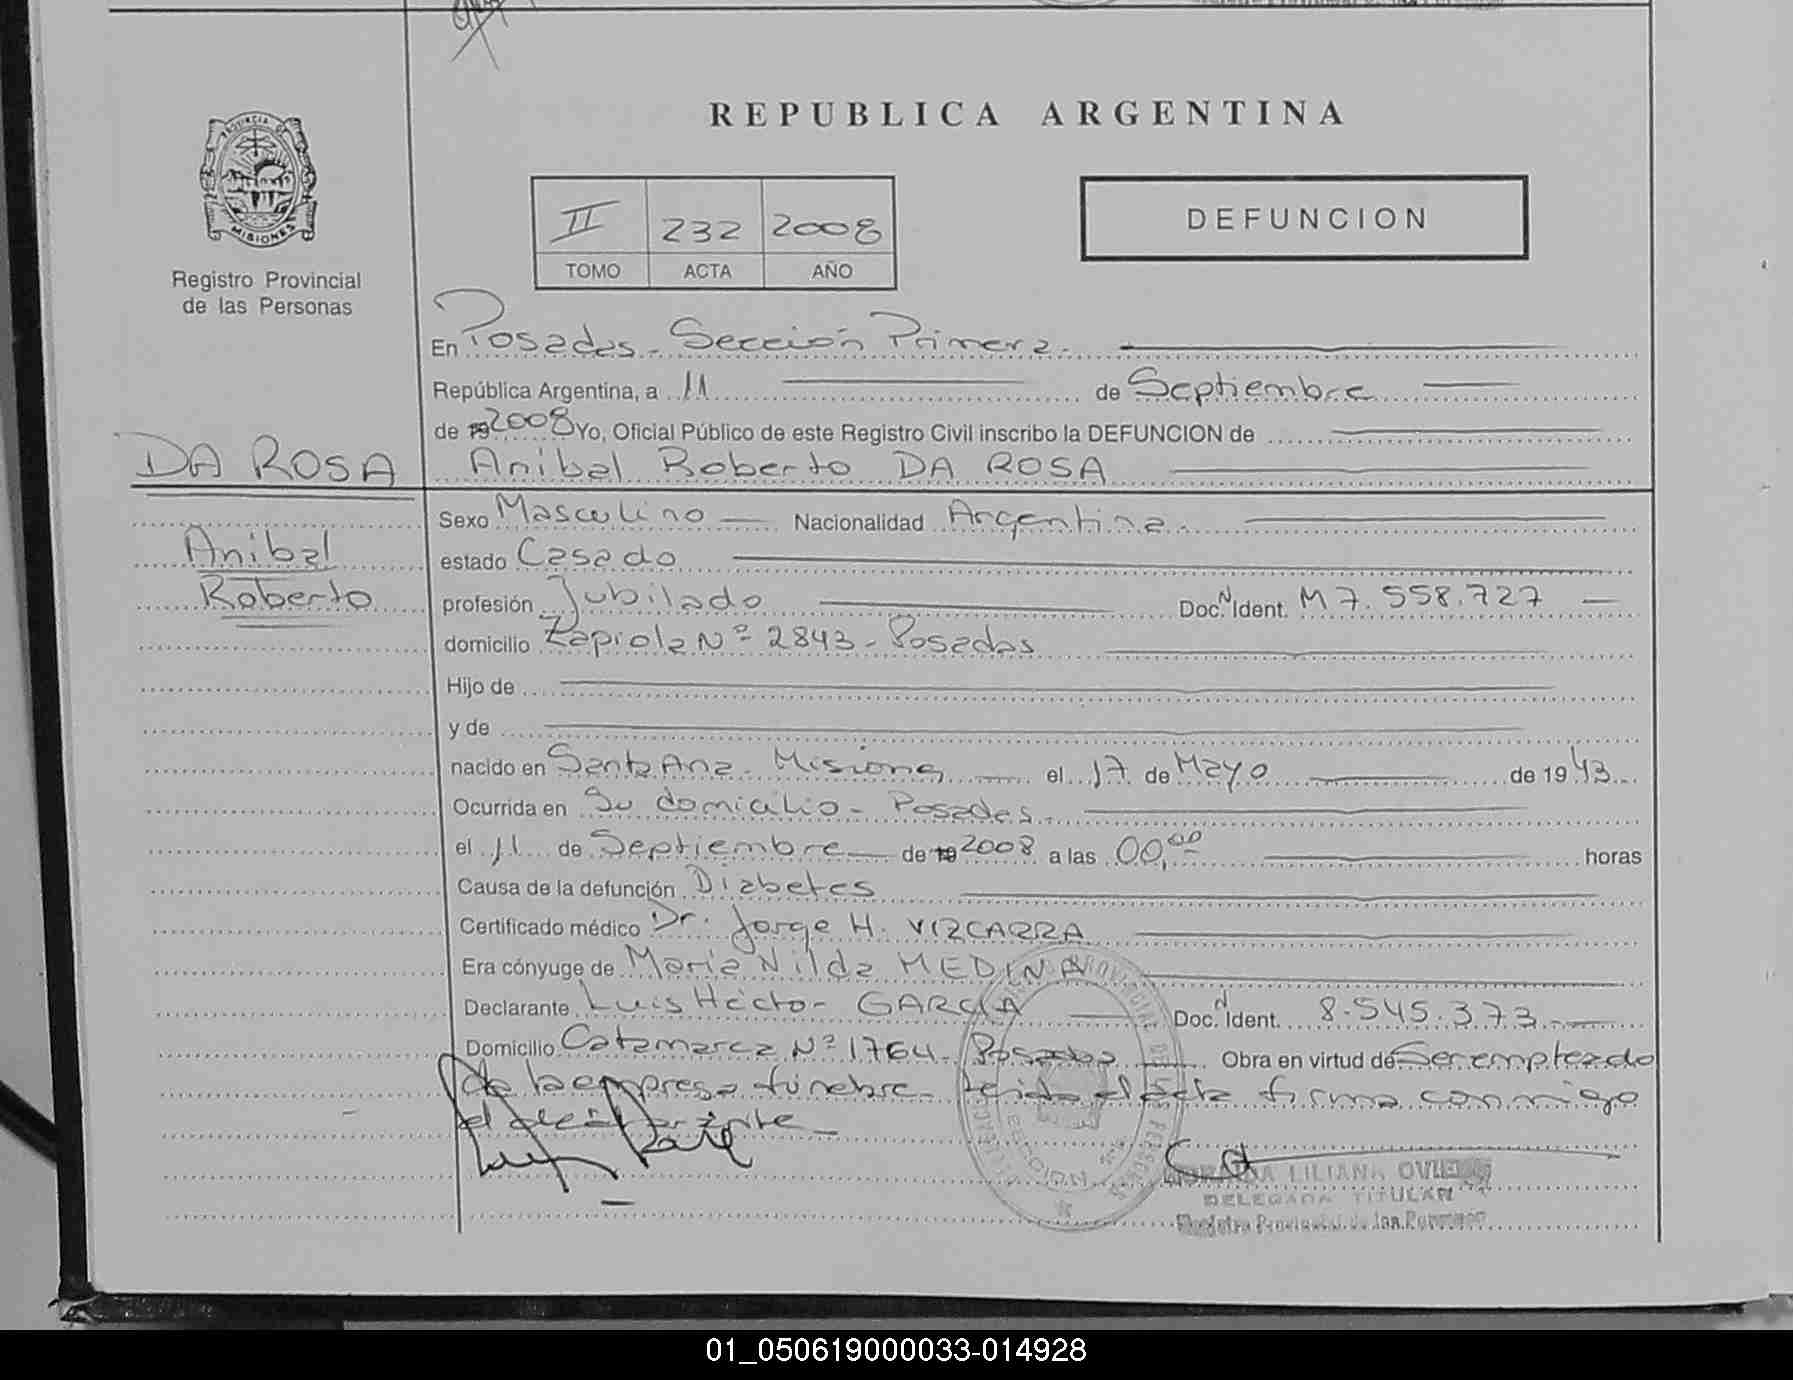 REPUBLICA ARGENTINA
PROVINCIA DE
MISIONES
Registro Provincial
de las Personas
II 232 2008
TOMO ACTA AÑO
DEFUNCION
En Posadas - Sección Primera -
República Argentina, a 11 de Septiembre
de 19 2008 Yo, Oficial Público de este Registro Civil inscribo la DEFUNCION de
DA ROSA
Anibal Roberto DA ROSA
Anibal
Roberto
Sexo Masculino Nacionalidad Argentina
estado Casado
profesión Jubilado Doc. N Ident. M 7.558.727
domicilio Zapiola Nº 2843 - Posadas
Hijo de
y de
nacido en Santa Ana - Misiones el 17 de Mayo de 19 43
Ocurrida en Su domicilio - Posadas
el 11 de Septiembre de 19 2008 a las 00,00 horas
Causa de la defunción Diabetes
Certificado médico Dr. Jorge H. VIZCARRA
Era cónyuge de María Nilda MEDINA
Declarante Luis Héctor GARCIA Doc. N Ident. 8.545.373
Domicilio Catamarca Nº 1764 - Posadas Obra en virtud de Ser empleado
de la empresa fúnebre - Leída el acta firma conmigo
el declarante
LILIANA
DELEGADA TITULAR
Registro Provincial de las Personas
01_050619000033-014928